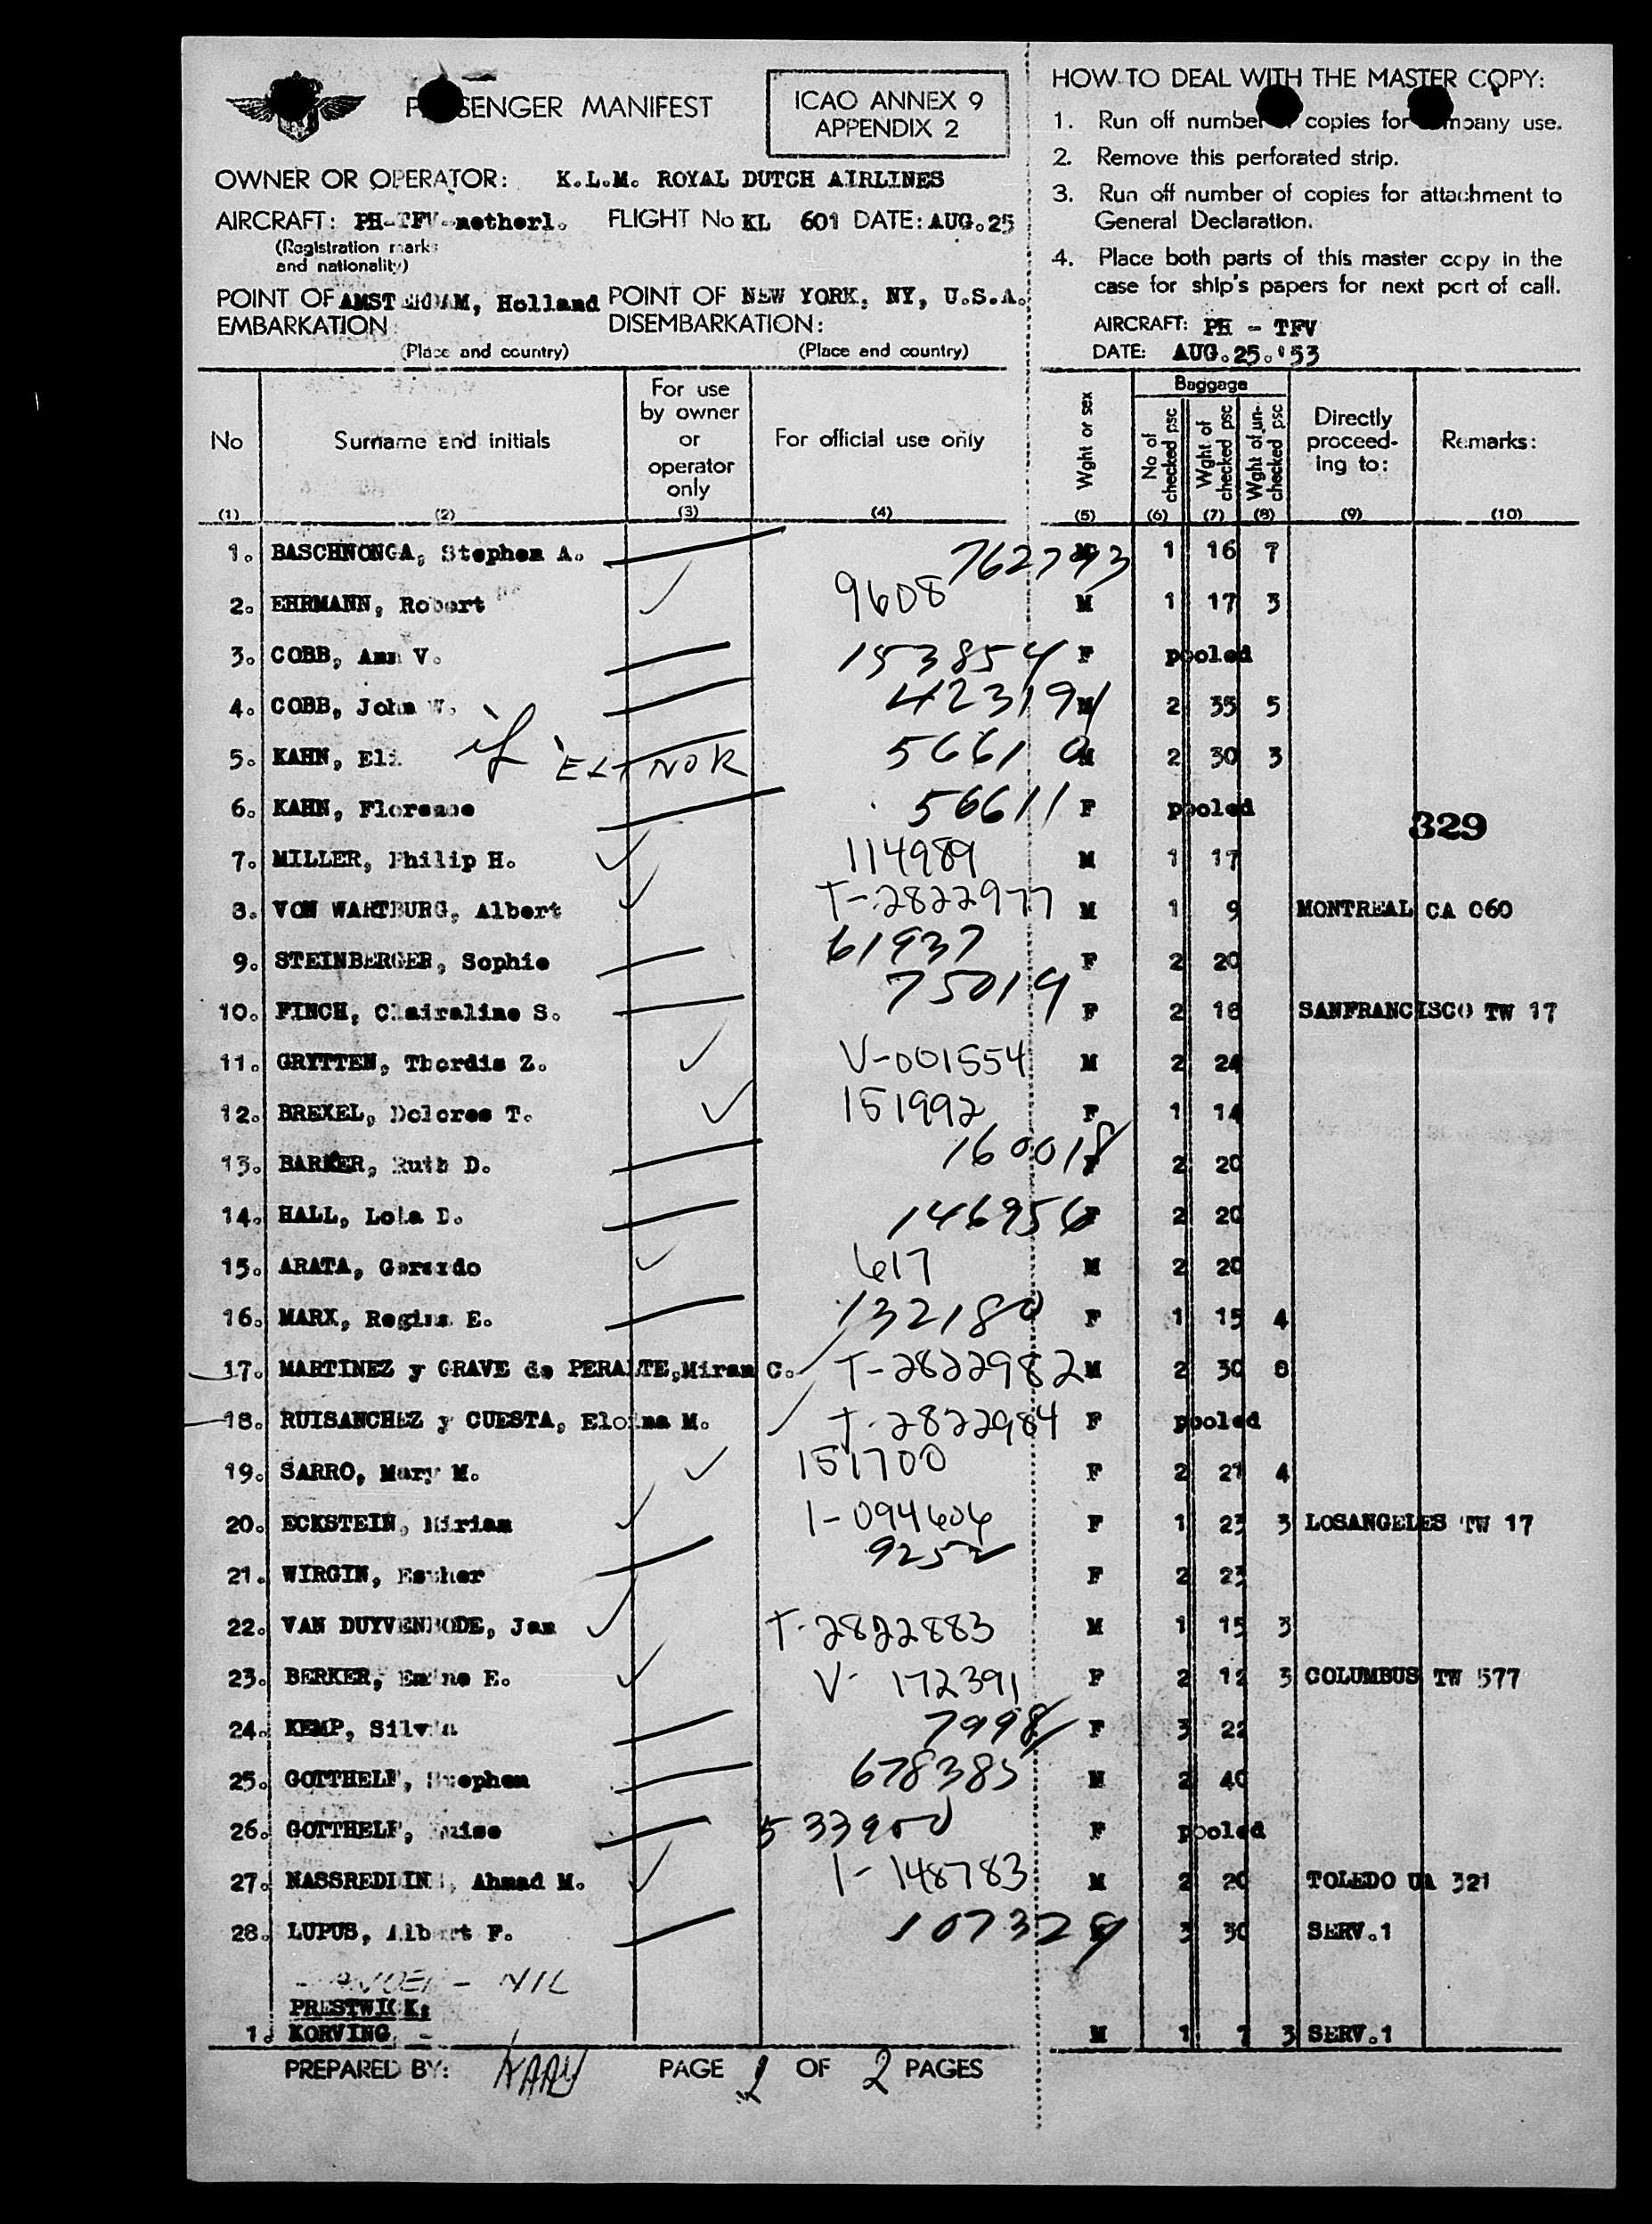 PASSENGER MANIFEST
ICAO ANNEX 9
APPENDIX 2
OWNER OR OPERATOR: K.L.M. ROYAL DUTCH AIRLINES
AIRCRAFT: PH-TFV-netherl. FLIGHT No KL 601 DATE: AUG.25
(Registration marks
and nationality)
POINT OF AMSTERDAM, Holland POINT OF NEW YORK, NY, U.S.A.
EMBARKATION DISEMBARKATION:
(Place and country) (Place and country)
HOW TO DEAL WITH THE MASTER COPY:
1. Run off number of copies for company use.
2. Remove this perforated strip.
3. Run off number of copies for attachment to
General Declaration.
4. Place both parts of this master copy in the
case for ship's papers for next port of call.
AIRCRAFT: PH - TFV
DATE: AUG.25.'53
No Surname and initials For use by owner or operator only For official use only Wght or sex Baggage No of checked psc Wght of checked psc Wght of un-checked psc Directly proceed-ing to: Remarks:
(1) (2) (3) (4) (5) (6) (7) (8) (9) (10)
1. BASCHNONGA, Stephen A. 7627793 1 16 7
2. EHRMANN, Robert 9608 M 1 17 3
3. COBB, Ann V. 153854 F pooled
4. COBB, John W. 423194 M 2 35 5
5. KAHN, Eli ELINOR 56610 M 2 30 3
6. KAHN, Florence 56611 F pooled
329
7. MILLER, Philip H. 114989 M 1 17
8. VON WARTBURG, Albert T-2822977 M 1 9 MONTREAL CA 060
9. STEINBERGER, Sophie 61937 F 2 20
10. FINCH, Clairaline S. 75019 F 2 18 SANFRANCISCO TW 17
11. GRYTTEN, Thordis Z. V-001554 M 2 24
12. BREXEL, Dolores T. 151992 F 1 14
13. BARKER, Ruth D. 160018 F 2 20
14. HALL, Lola D. 146956 F 2 20
15. ARATA, Gerardo 617 M 2 20
16. MARX, Regina E. 132180 F 1 15 4
17. MARTINEZ y GRAVE de PERALTE, Miram C. T-2822982 M 2 30 8
18. RUISANCHEZ y CUESTA, Eloina M. T-2822984 F pooled
19. SARRO, Mary M. 151700 F 2 21 4
20. ECKSTEIN, Miriam I-094606 F 1 23 3 LOSANGELES TW 17
21. WIRGIN, Esther 9252 F 2 23
22. VAN DUYVENBODE, Jan T-2822883 M 1 15 3
23. BERKER, Emine E. V-172391 F 2 12 3 COLUMBUS TW 577
24. KEMP, Silvia 7998 F 3 22
25. GOTTHELF, Stephen 678385 M 2 40
26. GOTTHELF, Luise 533900 F pooled
27. NASSREDDINE, Ahmad M. I-148783 M 2 20 TOLEDO UA 321
28. LUPUS, Albert F. 107329 3 30 SERV.1
- NIL
PRESTWICK:
1. KORVING, - M 1 7 3 SERV.1
PREPARED BY: PAGE 2 OF 2 PAGES